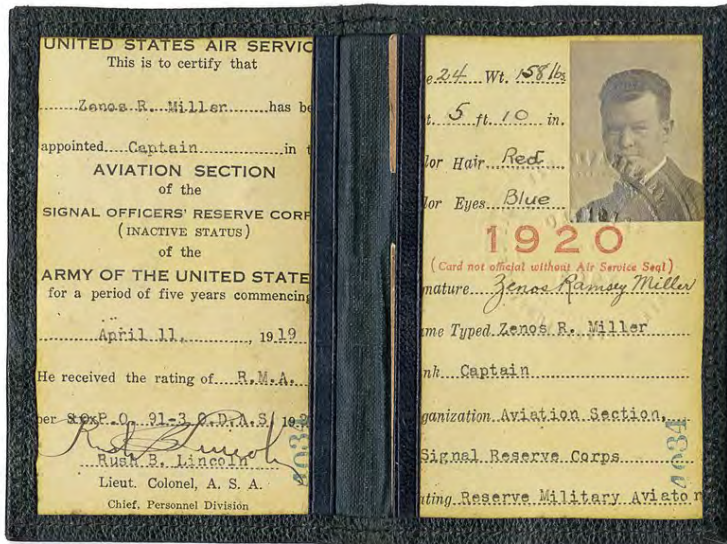 UNITED STATES AIR SERVIC
This is to certify that
Zenos R. Miller has be
appointed Captain in t
AVIATION SECTION
of the
SIGNAL OFFICERS' RESERVE CORP
(INACTIVE STATUS)
of the
ARMY OF THE UNITED STATE
for a period of five years commencing
April 11, , 1919
He received the rating of R.M.A.
per P.O. 91-3 O.D.A.S. 19
Rush B. Lincoln
Rush B. Lincoln
Lieut. Colonel, A. S. A.
Chief, Personnel Division
4034
e 24 Wt. 158 lbs
t. 5 ft. 10 in.
lor Hair Red
lor Eyes Blue
1920
(Card not official without Air Service Seal)
nature Zenos Ramsey Miller
me Typed Zenos R. Miller
nk Captain
ganization Aviation Section,
Signal Reserve Corps
ting Reserve Military Aviator
4034